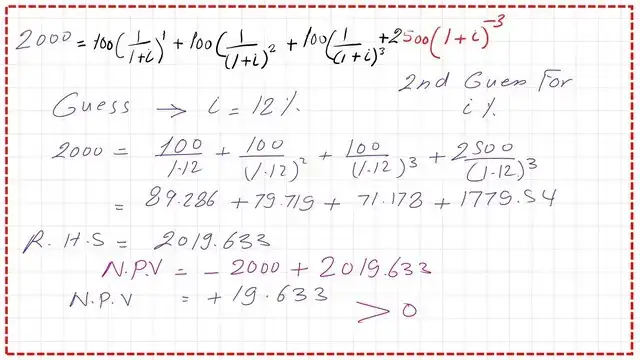 2000 = 100(1/1+i)¹ + 100(1/(1+i))² + 100(1/(1+i))³ + 2500(1+i)⁻³
2nd Guess For
Guess → i = 12%. i%
2000 = 100/1.12 + 100/(1.12)² + 100/(1.12)³ + 2500/(1.12)³
= 89.286 + 79.719 + 71.178 + 1779.54
R.H.S = 2019.633
N.P.V = - 2000 + 2019.633
N.P.V = + 19.633 > 0